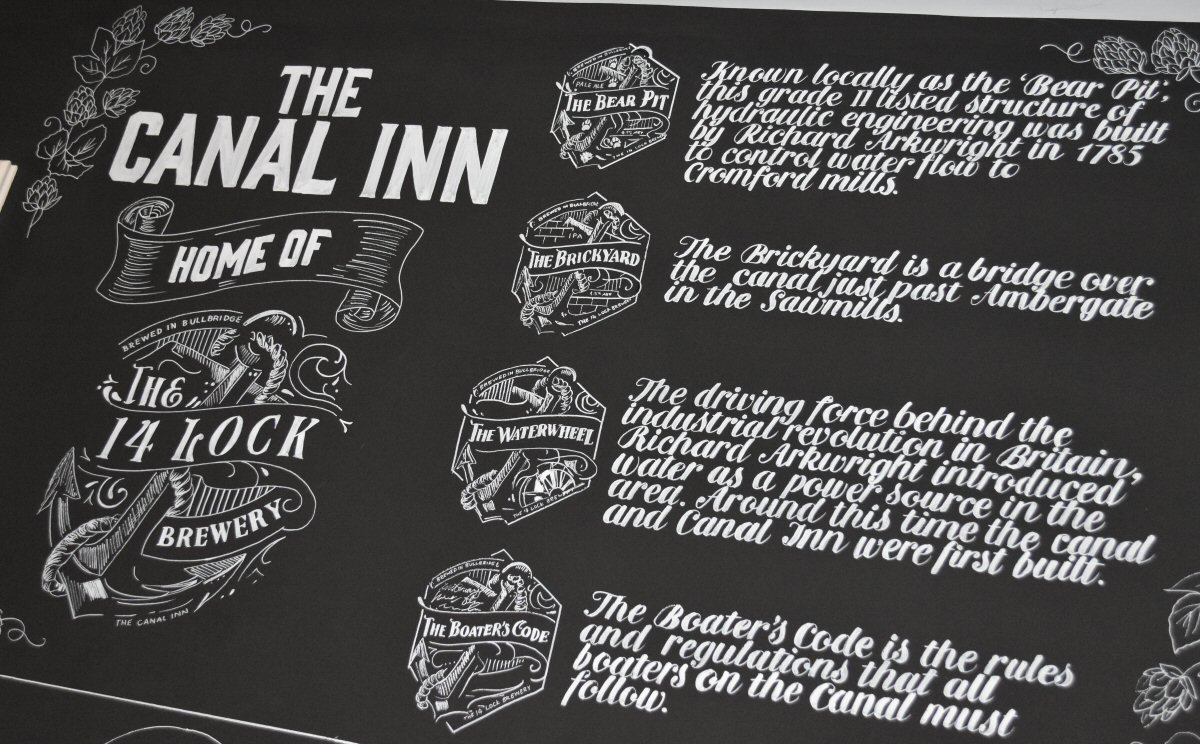 THE
CANAL INN
HOME OF
BREWED IN BULLBRIDGE
THE
14 LOCK
BREWERY
THE CANAL INN
PALE ALE
THE BEAR PIT
THE 14 LOCK
Known locally as the 'Bear Pit',
this grade II listed structure of
hydraulic engineering was built
by Richard Arkwright in 1785
to control water flow to
Cromford mills.
BREWED IN BULLBRIDGE
IPA
THE BRICKYARD
THE 14 LOCK
The Brickyard is a bridge over
the canal just past Ambergate
in the Sawmills.
BREWED IN BULLBRIDGE
THE WATERWHEEL
THE 14 LOCK
The driving force behind the
industrial revolution in Britain,
Richard Arkwright introduced
water as a power source in the
area. Around this time the canal
and Canal Inn were first built.
BREWED IN BULLBRIDGE
THE BOATER'S CODE
THE 14 LOCK BREWERY
The Boater's Code is the rules
and regulations that all
boaters on the Canal must
follow.